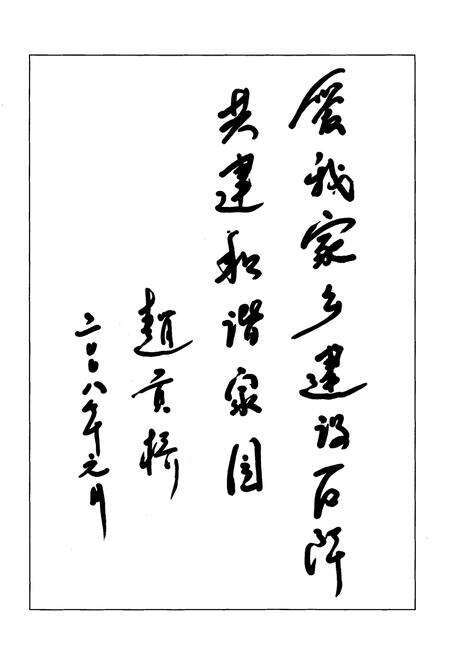 爱我家乡建设石阡
共建和谐家园
赵贡桥
二〇〇八年元月